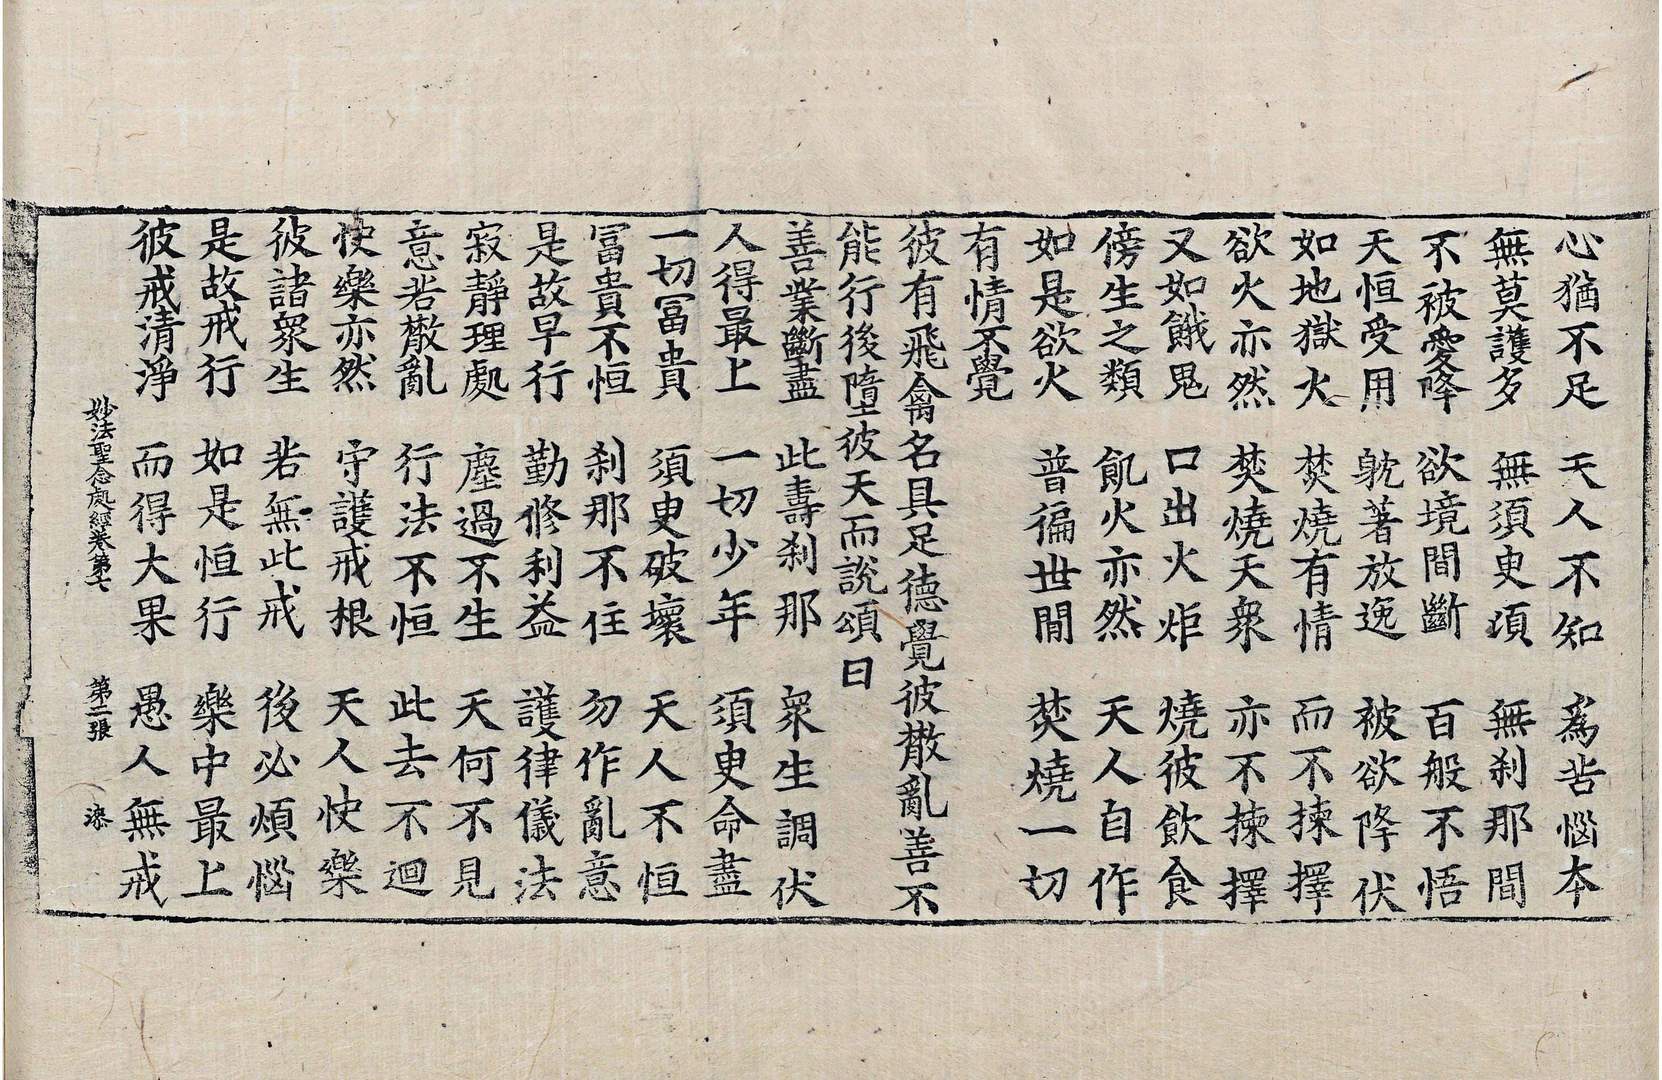 心猶不足 天人不知 爲苦惱本
無莫護多 無須臾頃 無刹那間
不被愛降 欲境間斷 百般不悟
天恒受用 躭著放逸 被欲降伏
如地獄火 焚燒有情 而不揀擇
欲火亦然 焚燒天衆 亦不揀擇
又如餓鬼 口出火炬 燒彼飲食
傍生之類 飢火亦然 天人自作
如是欲火 普徧世間 焚燒一切
有情不覺
彼有飛禽名具足德覺彼散亂善不
能行後墮彼天而說頌曰
善業斷盡 此壽刹那 衆生調伏
人得最上 一切少年 須臾命盡
一切冨貴 須臾破壞 天人不恒
冨貴不恒 刹那不住 勿作亂意
是故早行 勤修利益 護律儀法
寂靜理處 塵過不生 天何不見
意若散亂 行法不恒 此去不迴
快樂亦然 守護戒根 天人快樂
彼諸衆生 若無此戒 後必煩惱
是故戒行 如是恒行 樂中最上
彼戒清淨 而得大果 愚人無戒
妙法聖念處經卷第七 第二張 漆